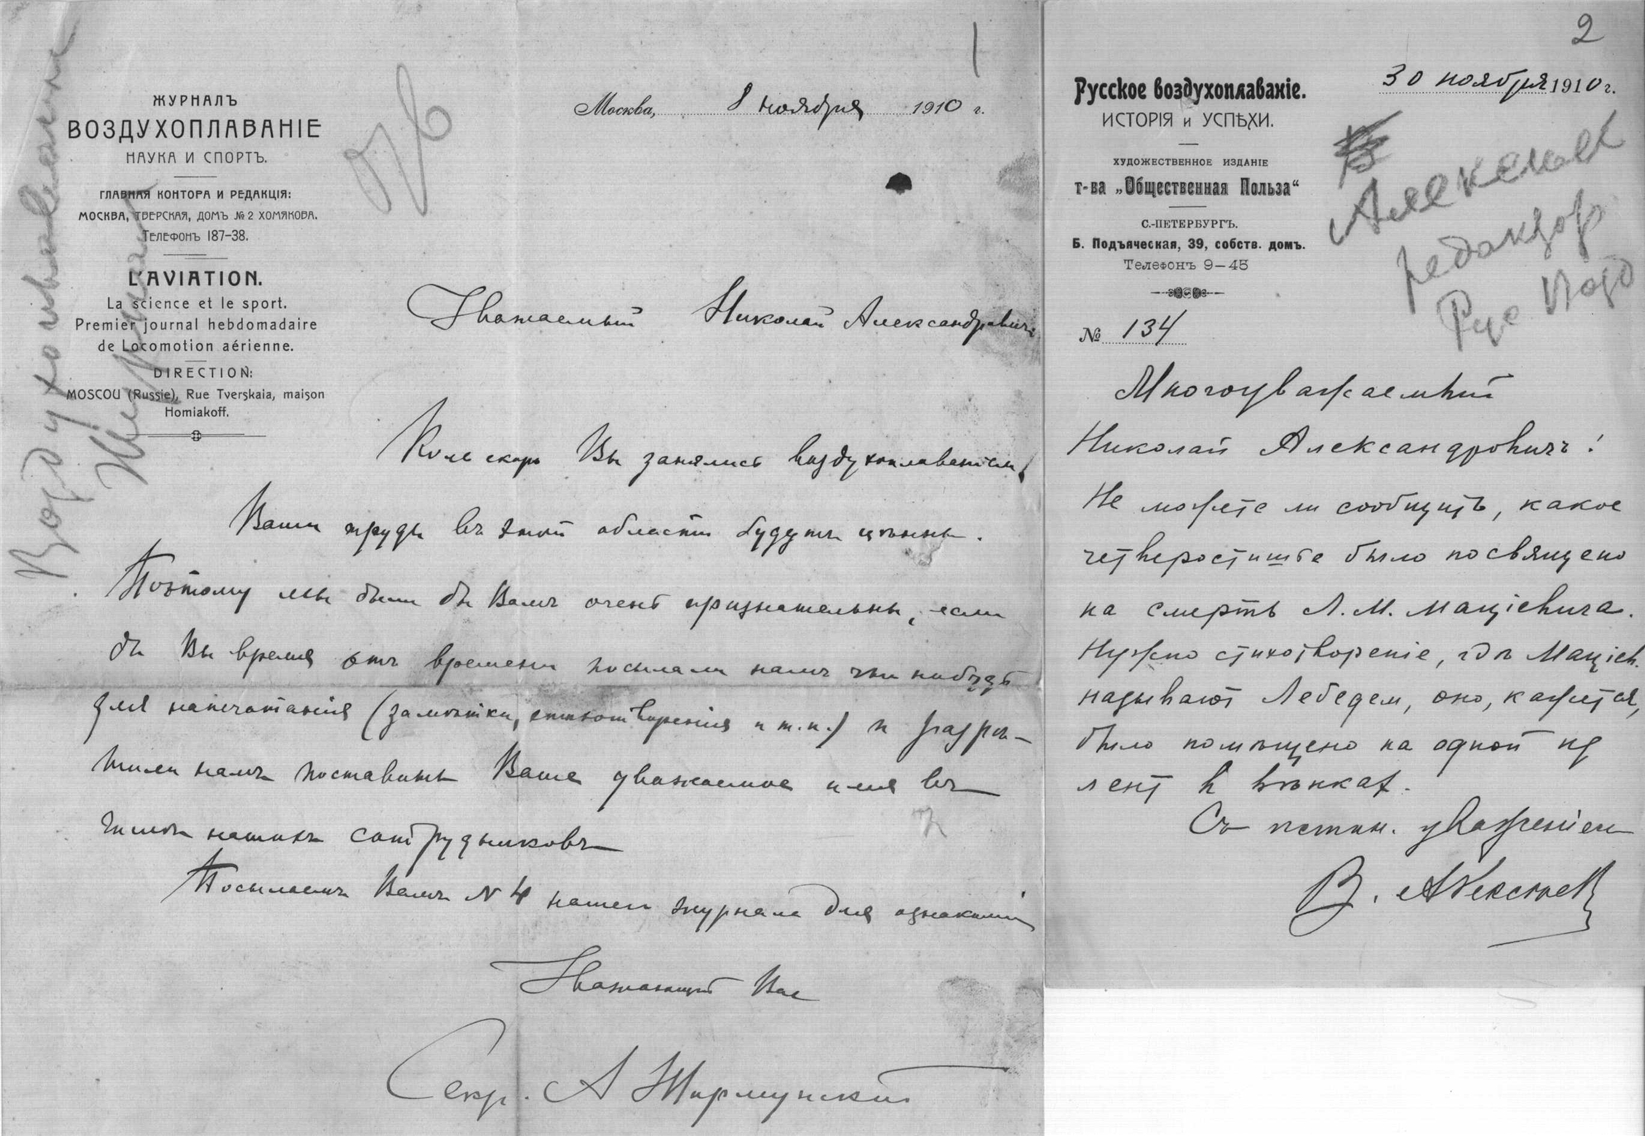 1
ЖУРНАЛЪ
ВОЗДУХОПЛАВАНІЕ
НАУКА И СПОРТЪ.
ГЛАВНАЯ КОНТОРА И РЕДАКЦІЯ:
МОСКВА, ТВЕРСКАЯ, ДОМЪ № 2 ХОМЯКОВА.
ТЕЛЕФОНЪ 187-38.
L'AVIATION.
La science et le sport.
Premier journal hebdomadaire
de Locomotion aérienne.
DIRECTION:
MOSCOU (Russie), Rue Tverskaia, maison
Homiakoff.
Воздухоплавание
Москва, 8 ноября 1910 г.
Уважаемый Николай Александровичъ
Коль скоро Вы занялись воздухоплаваніемъ,
Ваши труды въ этой области будутъ цѣнны.
Поэтому мы были бы Вамъ очень признательны, если
бы Вы время отъ времени посылали намъ что нибудь
для напечатанія (замѣтки, стихотворенія и т.п.) и разрѣ-
шили намъ поставить Ваше уважаемое имя въ
числѣ нашихъ сотрудниковъ
Посылаемъ Вамъ № 4 нашего журнала для ознакомленія
Уважающій Васъ
Секр. А Жирмунскій
2
Русское воздухоплаваніе.
ИСТОРІЯ и УСПѢХИ.
ХУДОЖЕСТВЕННОЕ ИЗДАНІЕ
т-ва „Общественная Польза“
С.-ПЕТЕРБУРГЪ.
Б. Подъяческая, 39, собств. домъ.
Телефонъ 9-45
№ 134
30 ноября 1910 г.
редактор
Многоуважаемый
Николай Александровичъ!
Не можете ли сообщить, какое
четверостишіе было посвящено
на смерть Л. М. Маціевича.
Нужно стихотвореніе, гдѣ Маціев.
называют Лебедем, оно, кажется,
было помѣщено на одной из
лент в вѣнках.
Съ истин. уваженіем